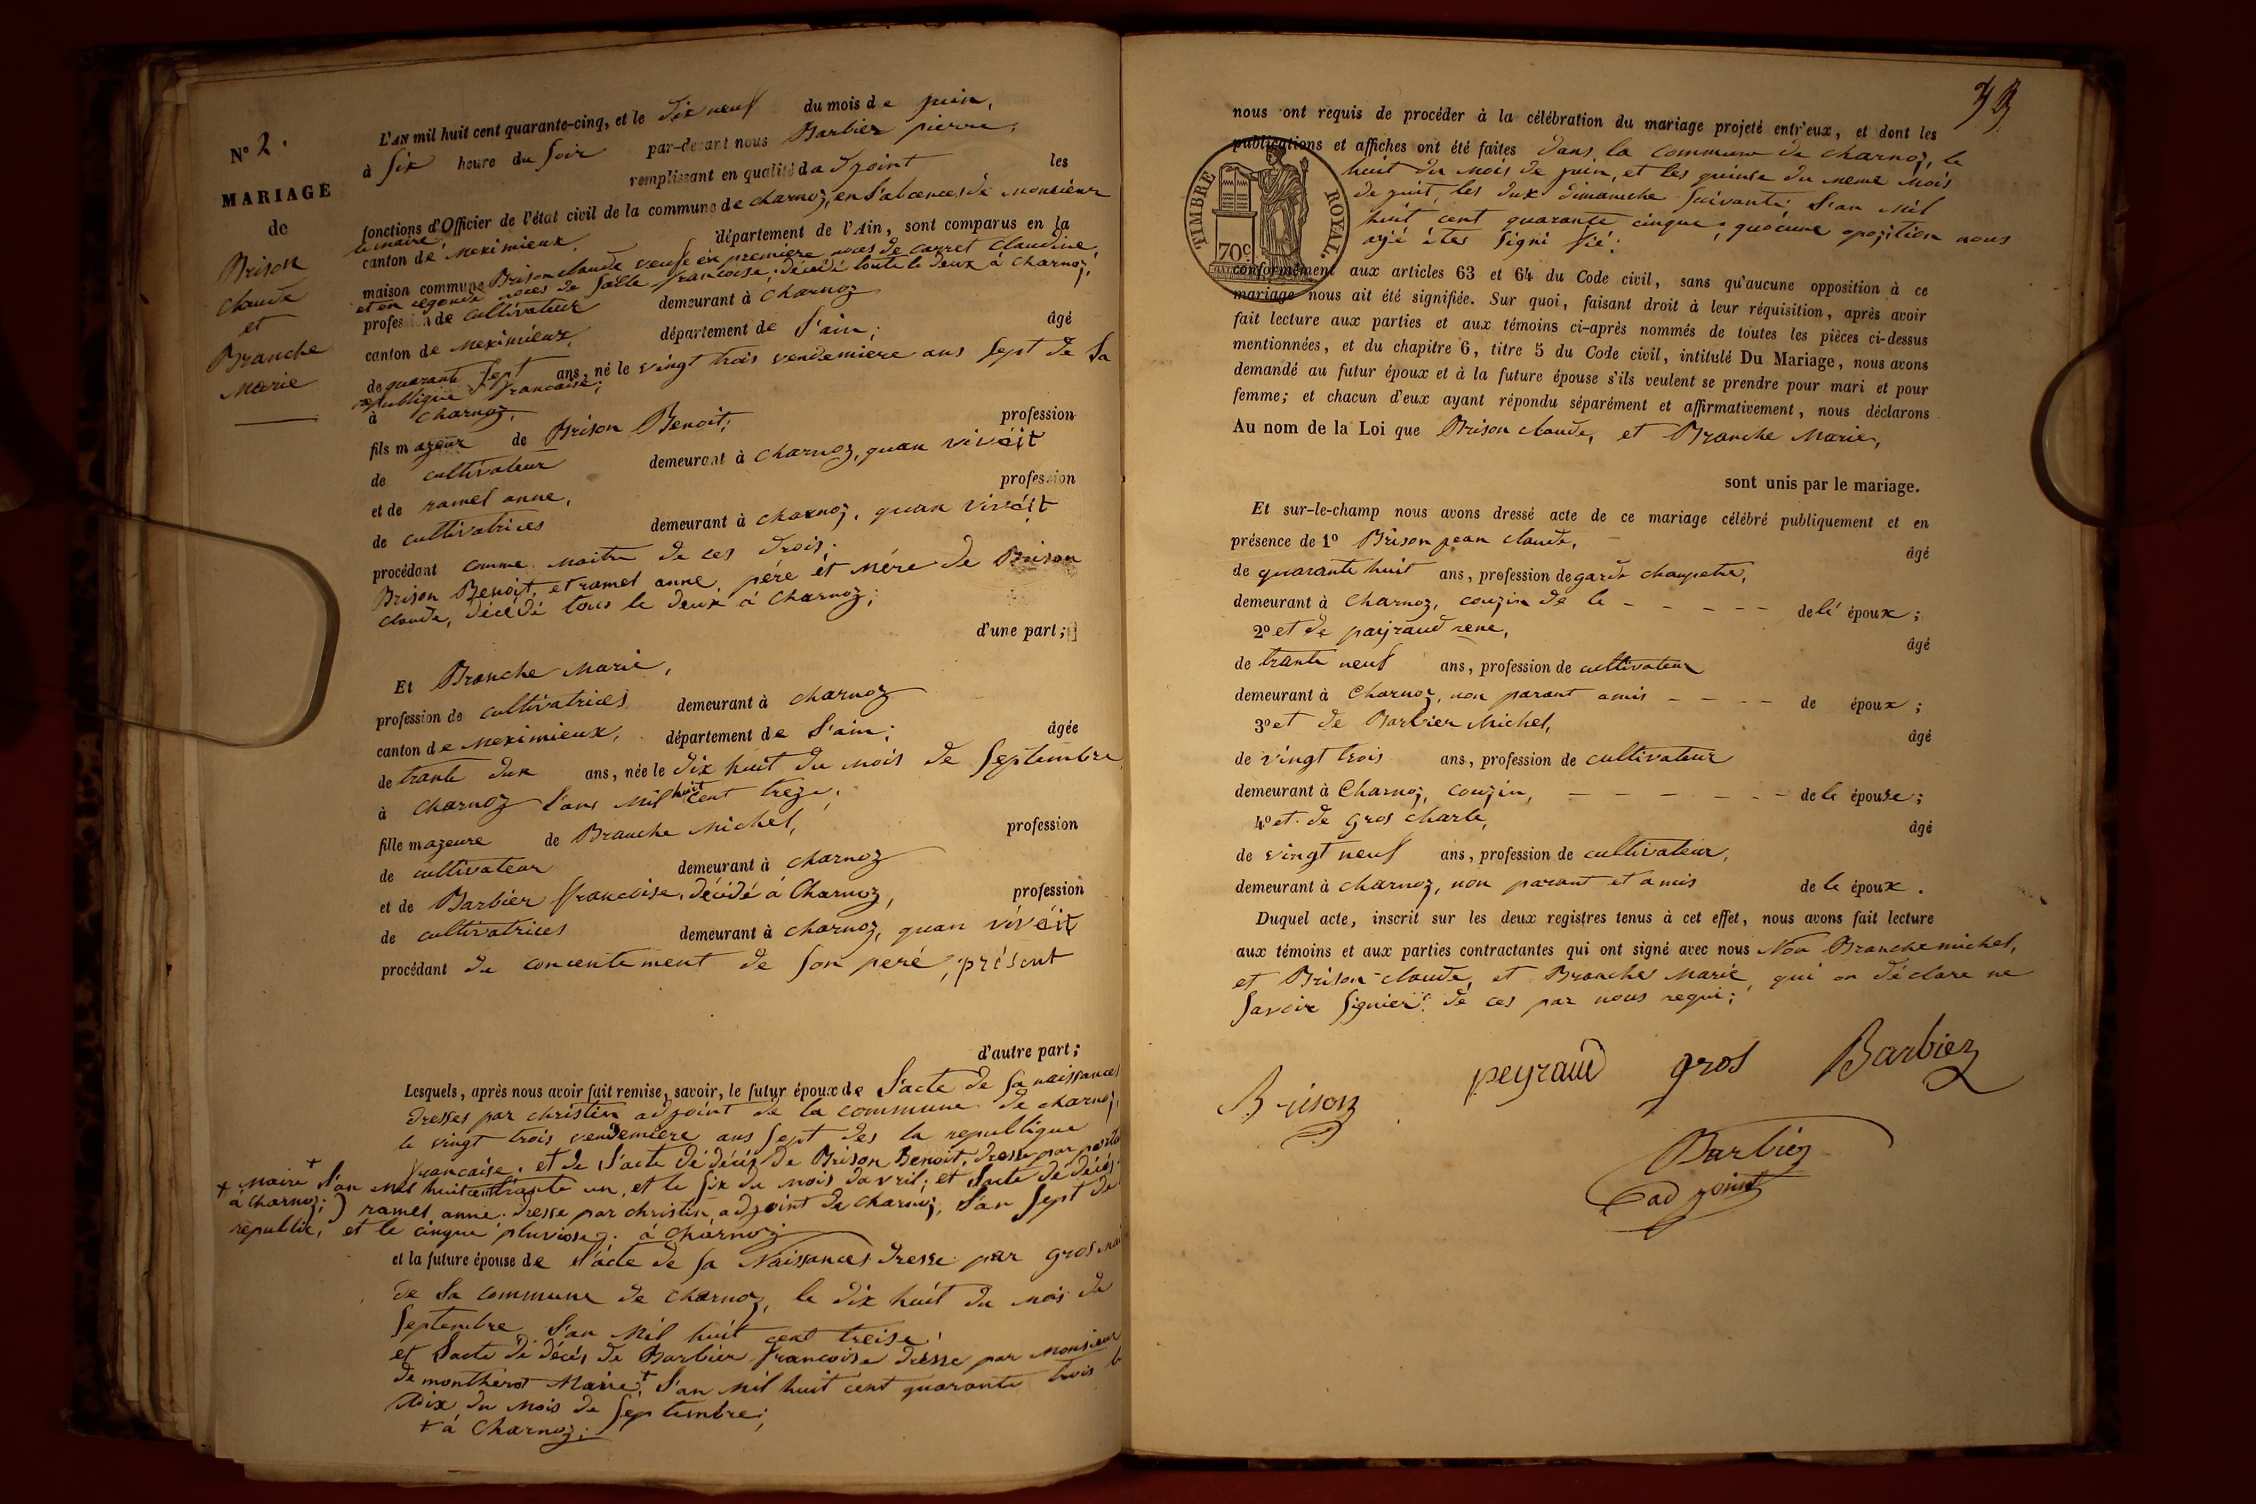 N° 2.
MARIAGE
de
Brison
claude
et
Branche
Marie
L'AN mil huit cent quarante-cinq, et le dix neuf du mois de juin,
à Six heure du Soir par-devant nous Barbier pierre,
remplissant en qualité d adjoint les
fonctions d'Officier de l'état civil de la commune de charnoz, en l'absence de monsieur
le maire
canton de meximieux, département de l'Ain, sont comparus en la
maison commune Brison claude veufe en première noces de Carret Claudine,
et en segonde noces de francoise, décédé toute le deux à Charnoz,
profession de cultivateur demeurant à Charnoz
canton de meximieux, département de l'ain; âgé
de quarante Sept ans, né le vingt trois vendemiere ans Sept de la
republique francaise;
à Charnoz,
fils mageur de Brison Benoit, profession
de cultivateur demeurant à Charnoz, quan vivéit
et de ramel anne, profession
de cultivatrices demeurant à charnoz, quan vivéit
procédant comme maitre de ces drois,
Brison Benoit, et ramel anne, pére et mére de Brison
claude, décédé tous le deux à Charnoz;
d'une part;
Et Branche Marie,
profession de cultivatrices demeurant à charnoz
canton de meximieux, département de l'ain; âgée
de trante dux ans, née le dix huit du mois de Septembre
à Charnoz l'ans mil huit cent treze,
fille mageure de Branche Michel, profession
de cultivateur demeurant à charnoz
et de Barbier francoise, décédé à Charnoz, profession
de cultivatrices demeurant à charnoz, quan vivéit
procédant du concentement de son peré, présent
d'autre part;
Lesquels, après nous avoir fait remise, savoir, le futur époux de l'acte de sa naissances
dresses par christin adjoint de la commune de charnoz,
le vingt trois vendemiere ans Sept des la republique
francaise. et de l'acte de décés de Brison Benoit, dresse par
+ Maire l'an mil huit cent trante un, et le Six du mois davril; et l'acte de décés
à Charnoz;) ramel anne. dresse par christin adjoint de charnoz, l'an Sept de
republix, et le cinque pluviose; à Charnoz
et la future épouse de l'acte de sa Naissances dresse par gros
de la commune de charnoz, le dix huit du mois de
Septembre l'an mil huit cent treise;
et l'acte de décés de Barbier francoise dresse par Monsieur
de montherot Maire + l'an mil huit cent quarante trois le
dix du mois de Septembre;
+ à Charnoz;
nous ont requis de procéder à la célébration du mariage projeté entr'eux, et dont les
publications et affiches ont été faites dans la commune de charnoz, le
huit du mois de juin, et les quinse du meme mois
de juit, les dux dimanche Suivante l'an mil
huit cent quarante cinque, quócune opozition nous
ayé étes signi fié;
TIMBRE ROYAL.
70c.
conformément aux articles 63 et 64 du Code civil, sans qu'aucune opposition à ce
mariage nous ait été signifiée. Sur quoi, faisant droit à leur réquisition, après avoir
fait lecture aux parties et aux témoins ci-après nommés de toutes les pièces ci-dessus
mentionnées, et du chapitre 6, titre 5 du Code civil, intitulé Du Mariage, nous avons
demandé au futur époux et à la future épouse s'ils veulent se prendre pour mari et pour
femme; et chacun d'eux ayant répondu séparément et affirmativement, nous déclarons
Au nom de la Loi que Brison claude, et Branche Marie,
sont unis par le mariage.
Et sur-le-champ nous avons dressé acte de ce mariage célébré publiquement et en
présence de 1° Brison jean claude, âgé
de quarante huit ans, profession de garde chanpetre,
demeurant à Charnoz, couzin de le de lé époux;
2° et de payraud rene, âgé
de trante neuf ans, profession de cultivateur
demeurant à Charnoz, non parant amis de époux;
3° et de Barbier Michel, âgé
de vingt trois ans, profession de cultivateur
demeurant à Charnoz, couzin, de le épouse;
4° et de gros charle, âgé
de vingt neuf ans, profession de cultivateur,
demeurant à charnoz, non parant et amis de le époux.
Duquel acte, inscrit sur les deux registres tenus à cet effet, nous avons fait lecture
aux témoins et aux parties contractantes qui ont signé avec nous Non Branche michel,
et Brison claude, et Branches Marie, qui on déclare ne
savoir signier de ces par nous requi;
Brison peyraud gros Barbier
Barbier
adjoint